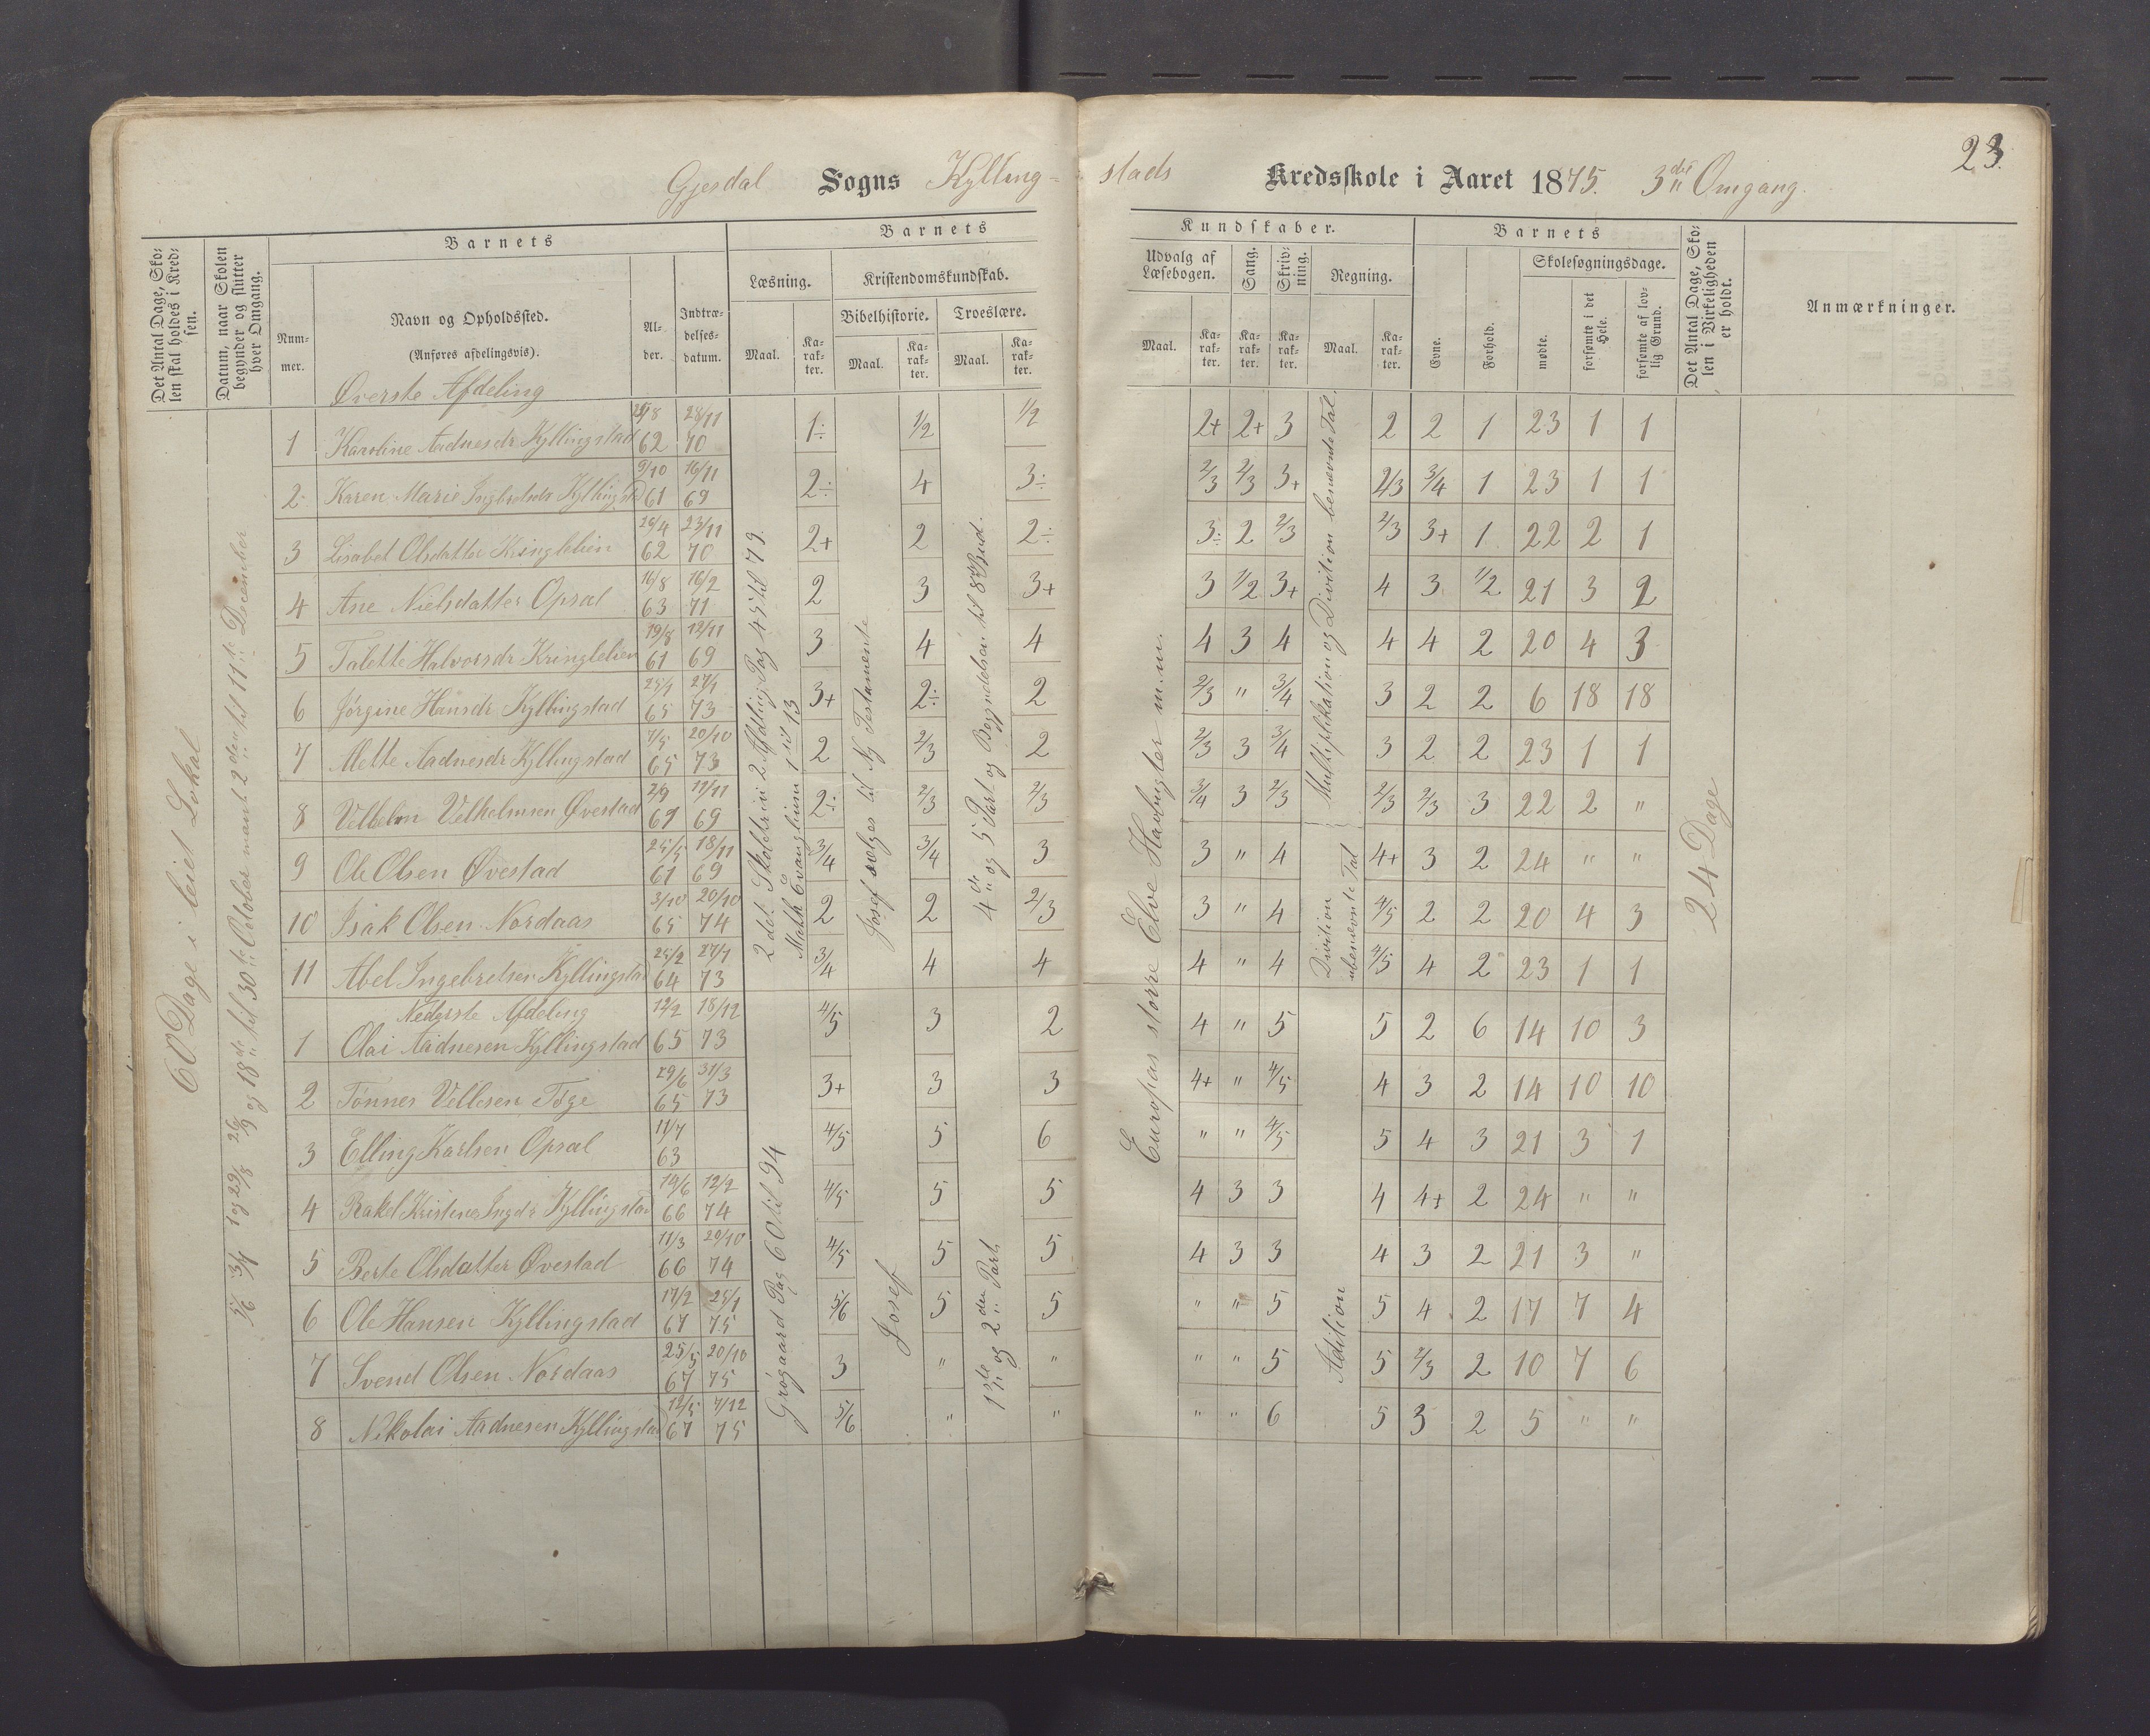 23.
Gjesdal Sogns Kylling- stads Kredsskole i Aaret 1875. 3die Omgang.
Det Antal Dage, Skolen skal holdes i Kredsen.
Datum, naar Skolen begynder og slutter hver Omgang.
Barnets
Nummer.
Navn og Opholdssted.
(Anføres afdelingsvis).
Alder.
Indtrædelsesdatum.
Barnets Kundskaber.
Læsning.
Maal. Karakter.
Kristendomskundskab.
Bibelhistorie. Troeslære.
Maal. Karakter. Maal. Karakter.
Udvalg af Læsebogen.
Maal. Karakter.
Sang. Karakter.
Skrivning. Karakter.
Regning.
Maal. Karakter.
Barnets
Evne. Forhold.
Skolesøgningsdage.
mødte. forsømte i det Hele. forsømte af lovlig Grund.
Det Antal Dage, Skolen i Virkeligheden er holdt.
Anmærkninger.
60 Dage i leiet Lokal
5/6 3/7 1 og 29/8 26/9 og 18de til 30te October samt 2den til 11te December
Øverste Afdeling
1 Karoline Aadnesdr Kyllingstad 25/8 62 28/11 70 1÷ 1/2 1/2 2+ 2+ 3 2 2 1 23 1 1
2 Karen Marie Ingbretsdr Kyllingstd 9/10 61 16/11 69 2÷ 4 3÷ 2/3 2/3 3+ 2/3 3/4 1 23 1 1
3 Lisabet Olsdatter Kringlelien 26/4 62 23/11 70 2+ 2 2÷ 3÷ 2 2/3 2/3 3+ 1 22 2 1
4 Ane Nielsdatter Opsal 16/8 63 16/2 71 2 3 3+ 3 1/2 3+ 4 3 1/2 21 3 2
5 Talette Halvorsdr Kringlelien 19/8 61 12/11 69 3 4 4 4 3 4 4 4 2 20 4 3
6 Jørgine Hansdr Kyllingstad 25/1 65 27/1 73 3+ 2÷ 2 2/3 " 3/4 3 2 2 6 18 18
7 Mette Aadnesdr Kyllingstad 7/5 65 20/10 73 2 2/3 2 2/3 3 3/4 3 2 2 23 1 1
8 Velhelm Velhelmsen Øvestad 2/9 61 12/11 69 2÷ 2/3 2/3 3/4 3 2/3 2/3 2/3 3 22 2 "
9 Ole Olsen Øvestad 25/5 61 18/11 69 3/4 3/4 3 3 " 4 4+ 3 2 24 " "
10 Isak Olsen Nordaas 3/10 65 20/10 74 2 2 2/3 3 " 4 4/5 2 2 20 4 3
11 Abel Ingebretsen Kyllingstad 25/2 64 27/1 73 3/4 4 4 4 " 4 4/5 4 2 23 1 1
Nederste Afdeling
1 Olai Aadnesen Kyllingstad 12/2 65 18/12 73 4/5 3 2 4 " 5 5 2 6 14 10 3
2 Tønnes Vellesen Tøge 29/6 65 31/3 73 3+ 3 3 4+ " 4/5 4 3 2 14 10 10
3 Elling Karlsen Opsal 11/7 63 4/5 5 6 " " 4/5 5 4 3 21 3 1
4 Rakel Kristine Ingdr Kyllingstad 19/6 66 12/2 74 4/5 5 5 4 3 3 4 4+ 2 24 " "
5 Berte Olsdatter Øvestad 11/3 66 29/10 74 4/5 5 5 4 3 3 4 3 2 21 3 "
6 Ole Hansen Kyllingstad 17/2 67 25/1 75 5/6 5 5 " " 5 5 4 2 17 7 4
7 Svend Olsen Nordaas 25/5 67 20/10 75 3 " " " " 5 5 2/3 2 10 7 6
8 Nikolai Aadnesen Kyllingstad 12/5 67 7/12 75 5/6 " " " " 6 5 3 2 5 " "
2det Skoletrin 2 Afdling Pag 45 til 79.
Math Evanglium 1 til 13
Grøgaard Pag 60 til 94
Josef sælges til Ny Testamente
Josef
4de og 5 Part og Begyndelsen til 8de Bud.
1ste og 2den Part
Europas større Elve Havbugter m.m.
Multiplikation og Divition benevnte Tal.
Divition ubenevnte Tal
Adition
24 Dage